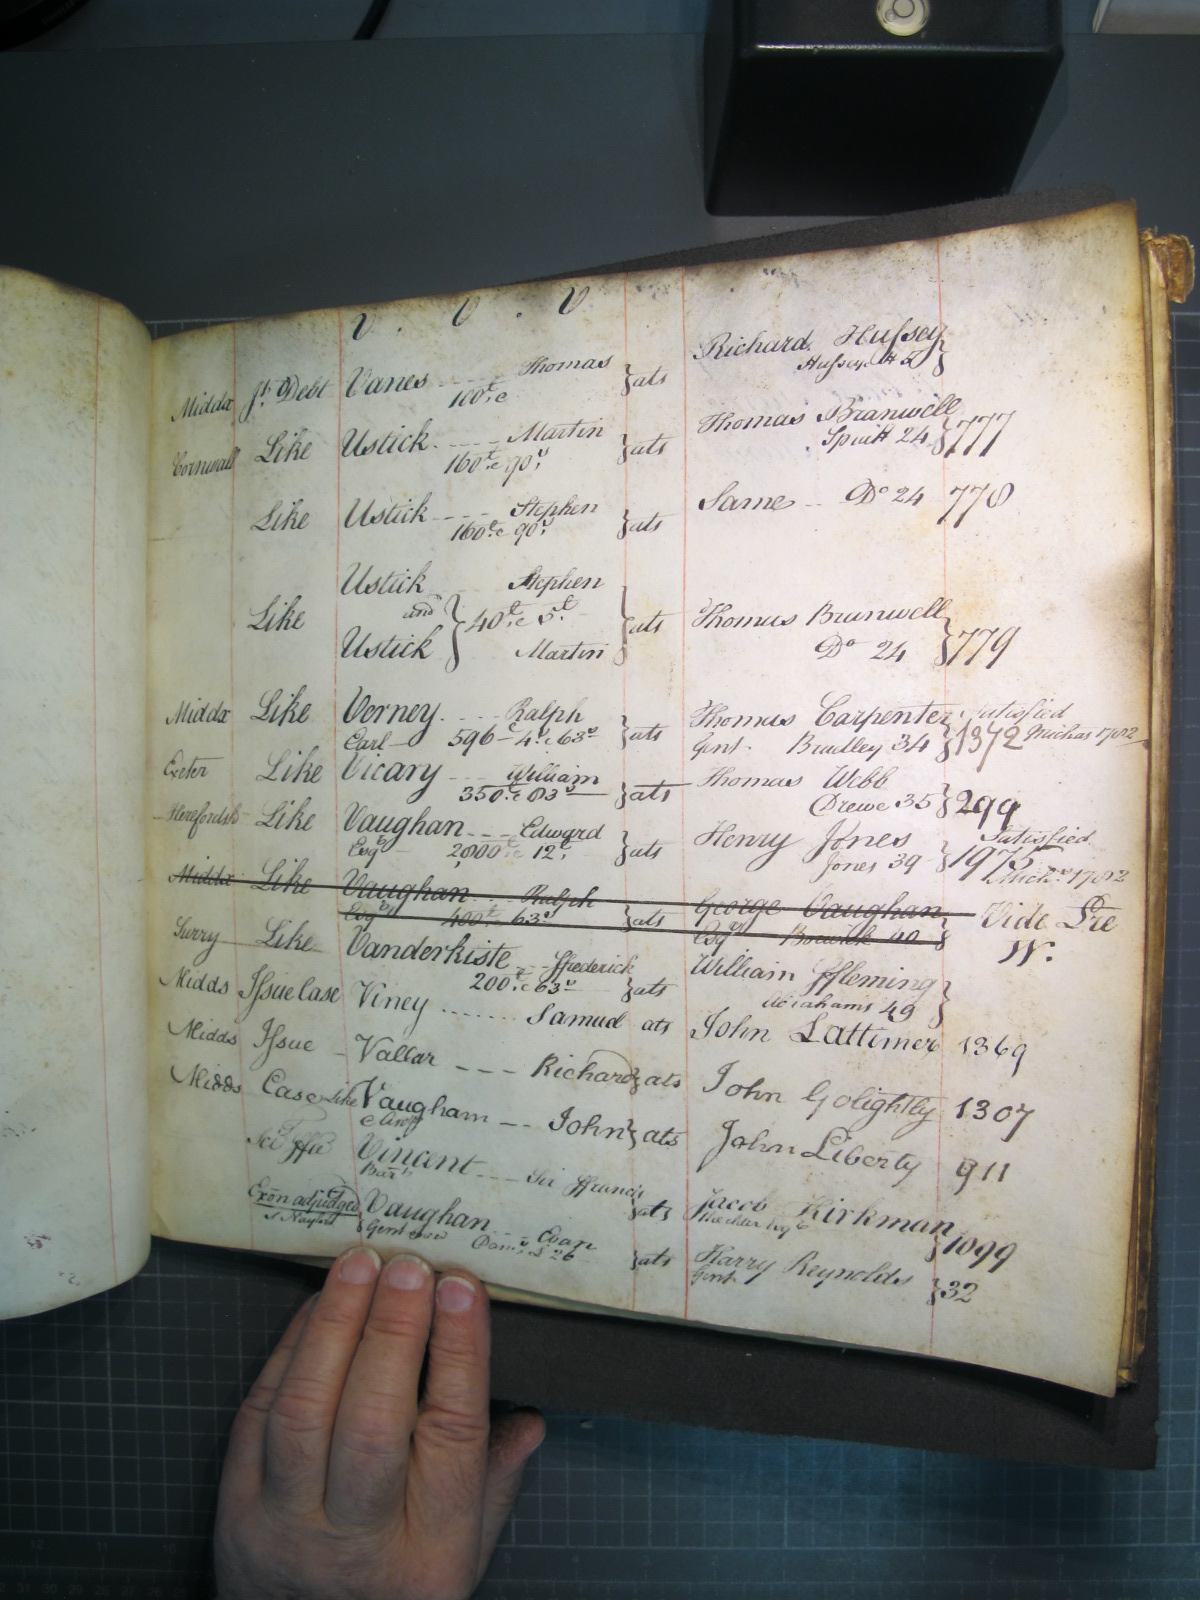 V . V . V
Middx Jt. Debt Vanes ---- Thomas } ats Richard Hussey }
100£ Hussey # 5
Cornwall Like Ustick ---- Martin } ats Thomas Branwell } 777
160£ 90s 24
Like Ustick ---- Stephen } ats Same -- Do 24 778
160£ 90s
Ustick ---- Stephen
Like and } 40£ 5£ } ats Thomas Branwell } 779
Ustick Martin Do 24
Middx Like Verney ---- Ralph } ats Thomas Carpenter } 1372 Satisfied
Earl 596 - 4s 63s Gent. Bradley 34 Michas 1782
Exeter Like Vicary ---- William } ats Thomas Webb } 299
350£ 83s Drewe 35
Herefordsh Like Vaughan --- Edward } ats Henry Jones } Satisfied
Esqr 2000£ 12£ Jones 39 Michs 1782
Middx Like Vaughan ---- Ralph } ats George Vaughan } Vide Lre
Esqr 400£ 63s Esqr 40 W.
Surry Like Vanderkiste --- ffrederick } ats William ffleming }
200£ 63s Abrahams 49
Midds Issue Case Viney ....... Samuel ats John Lattimer 1369
Midds Issue - Vallar --- Richard } ats John Golightly 1307
Midds Case Like Vaugham -- John } ats John Liberty 911
Sci ffa Vincent ---- Sir ffrancis } ats Jacob Kirkman } 1099
Bart
Exon adjudged Vaughan --- Evan } ats Harry Reynolds } 32
Gent Dams £ 26 Gent.